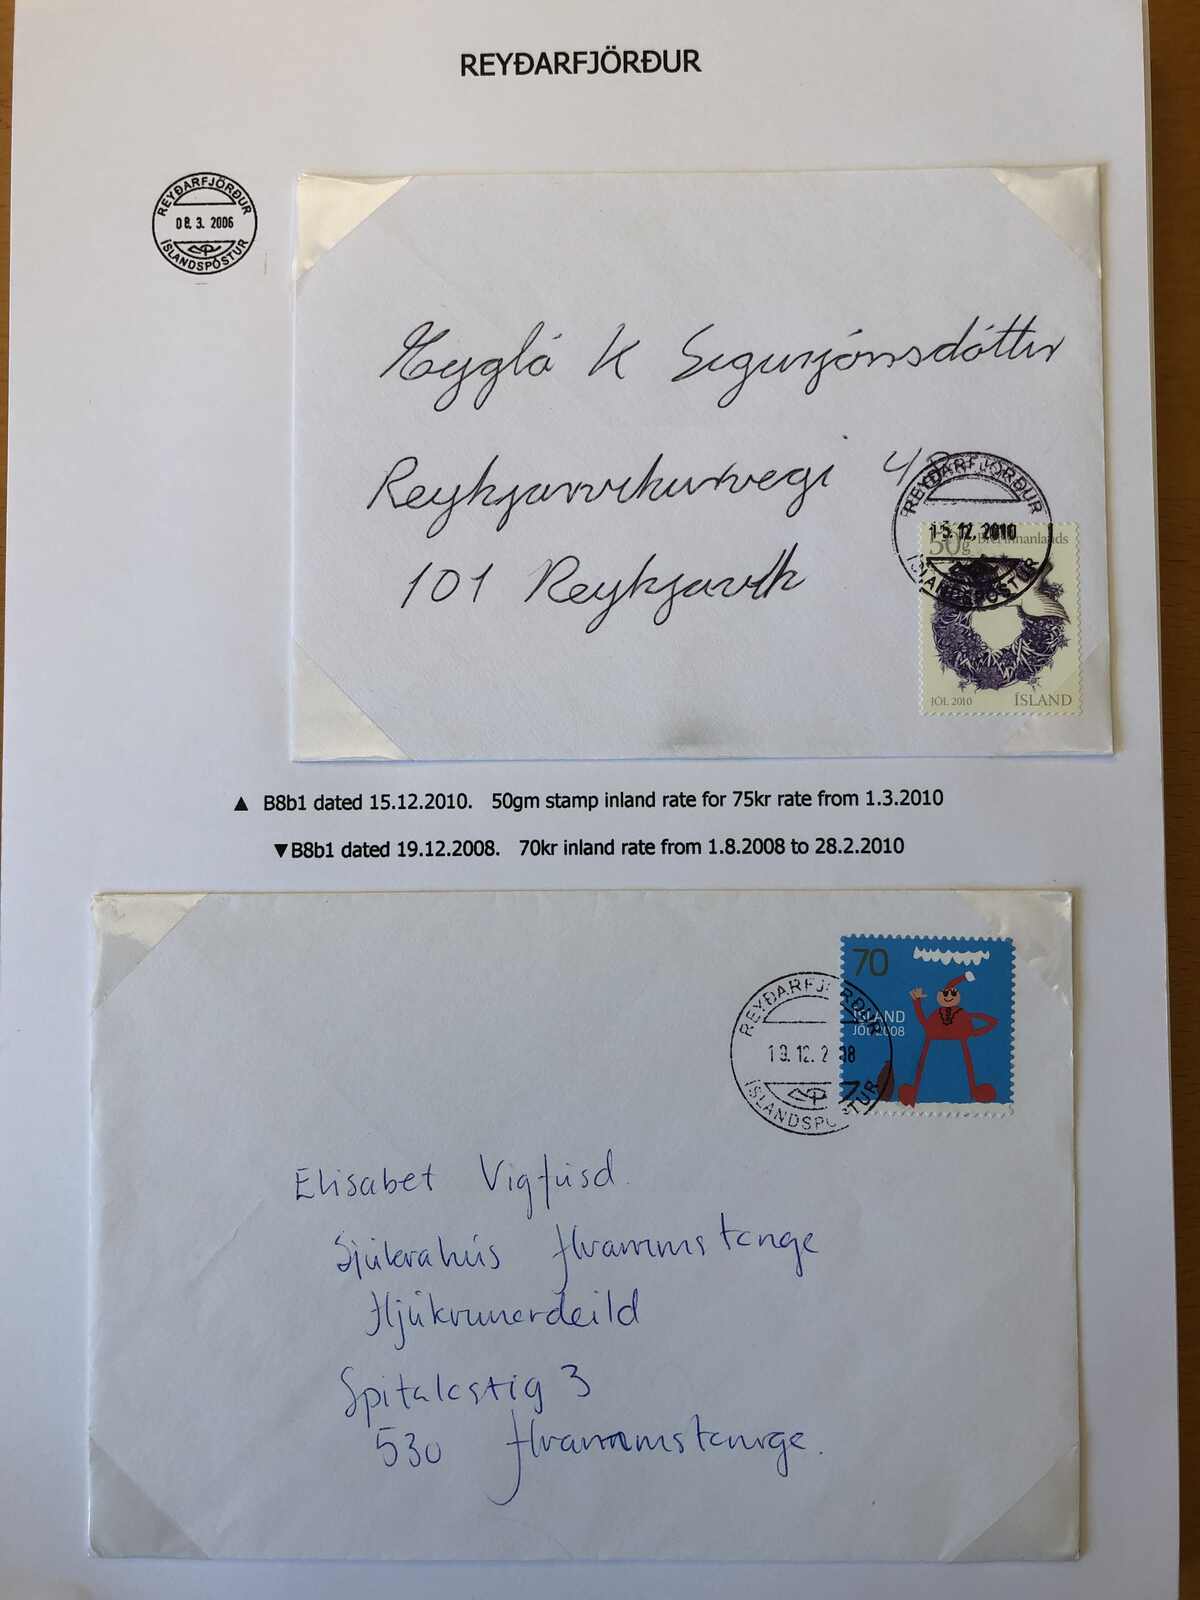 REYÐARFJÖRÐUR
REYÐARFJÖRÐUR
08. 3. 2006
ÍSLANDSPÓSTUR
K Sigurjónsdóttir
101 Reykjavík
REYÐARFJÖRÐUR
15.12.2010
ÍSLANDSPÓSTUR
50g Bréf innanlands
JÓL 2010 ÍSLAND
▲ B8b1 dated 15.12.2010. 50gm stamp inland rate for 75kr rate from 1.3.2010
▼B8b1 dated 19.12.2008. 70kr inland rate from 1.8.2008 to 28.2.2010
70
ÍSLAND
JÓL 2008
REYÐARFJÖRÐUR
19. 12. 2 08
ÍSLANDSPÓSTUR
Elisabet Vigfúsd.
Sjúkrahús Hvammstanga
Hjúkrunardeild
Spitalastig 3
530 Hvammstanga.